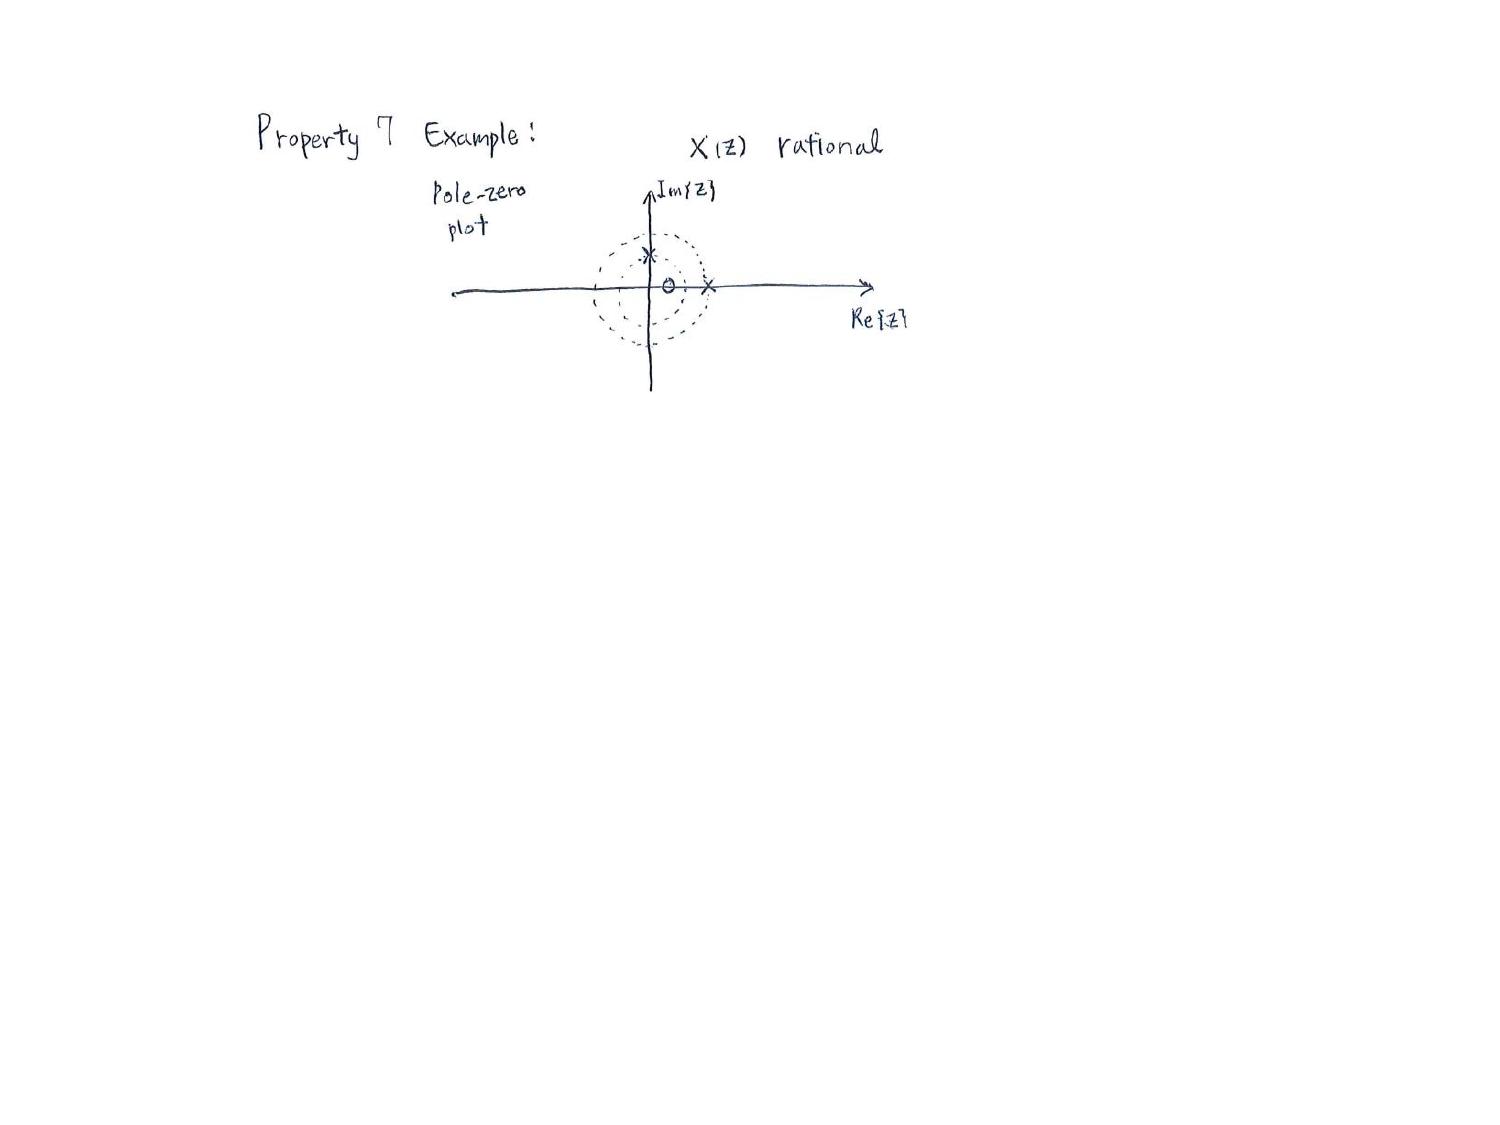 Property 7 Example:
X(z) rational
Pole-zero
plot
Im{z}
Re{z}